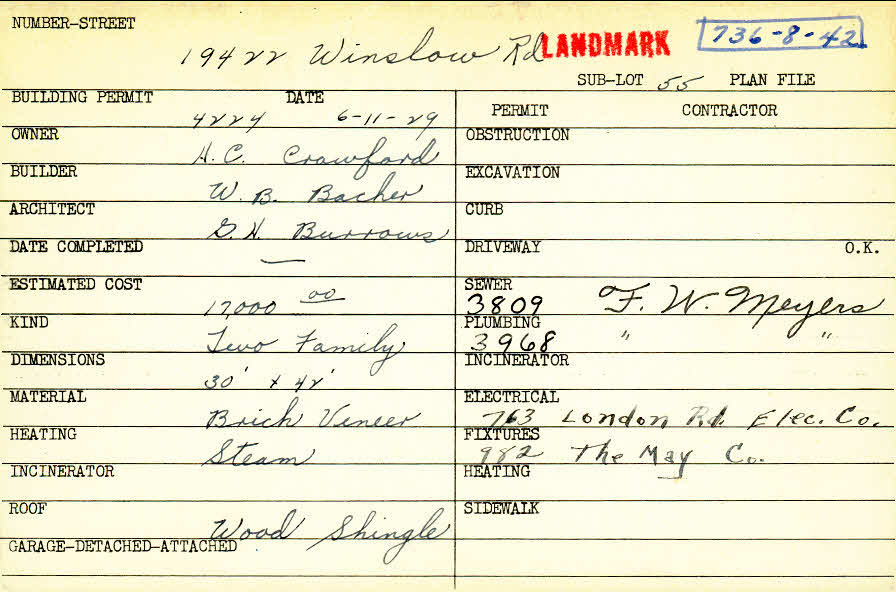 NUMBER-STREET
19422 Winslow Rd LANDMARK 736-8-42
SUB-LOT 55 PLAN FILE
BUILDING PERMIT DATE
4224 6-11-29
OWNER
H. C. Crawford
BUILDER
W. B. Bacher
ARCHITECT
G. H. Burrows
DATE COMPLETED
—
ESTIMATED COST
17,000 00
KIND
Two Family
DIMENSIONS
30' x 42'
MATERIAL
Brick Veneer
HEATING
Steam
INCINERATOR
ROOF
Wood Shingle
GARAGE-DETACHED-ATTACHED
PERMIT CONTRACTOR
OBSTRUCTION
EXCAVATION
CURB
DRIVEWAY O.K.
SEWER
3809 F. W. Meyers
PLUMBING
3968 " "
INCINERATOR
ELECTRICAL
763 London Rd. Elec. Co.
FIXTURES
982 The May Co.
HEATING
SIDEWALK